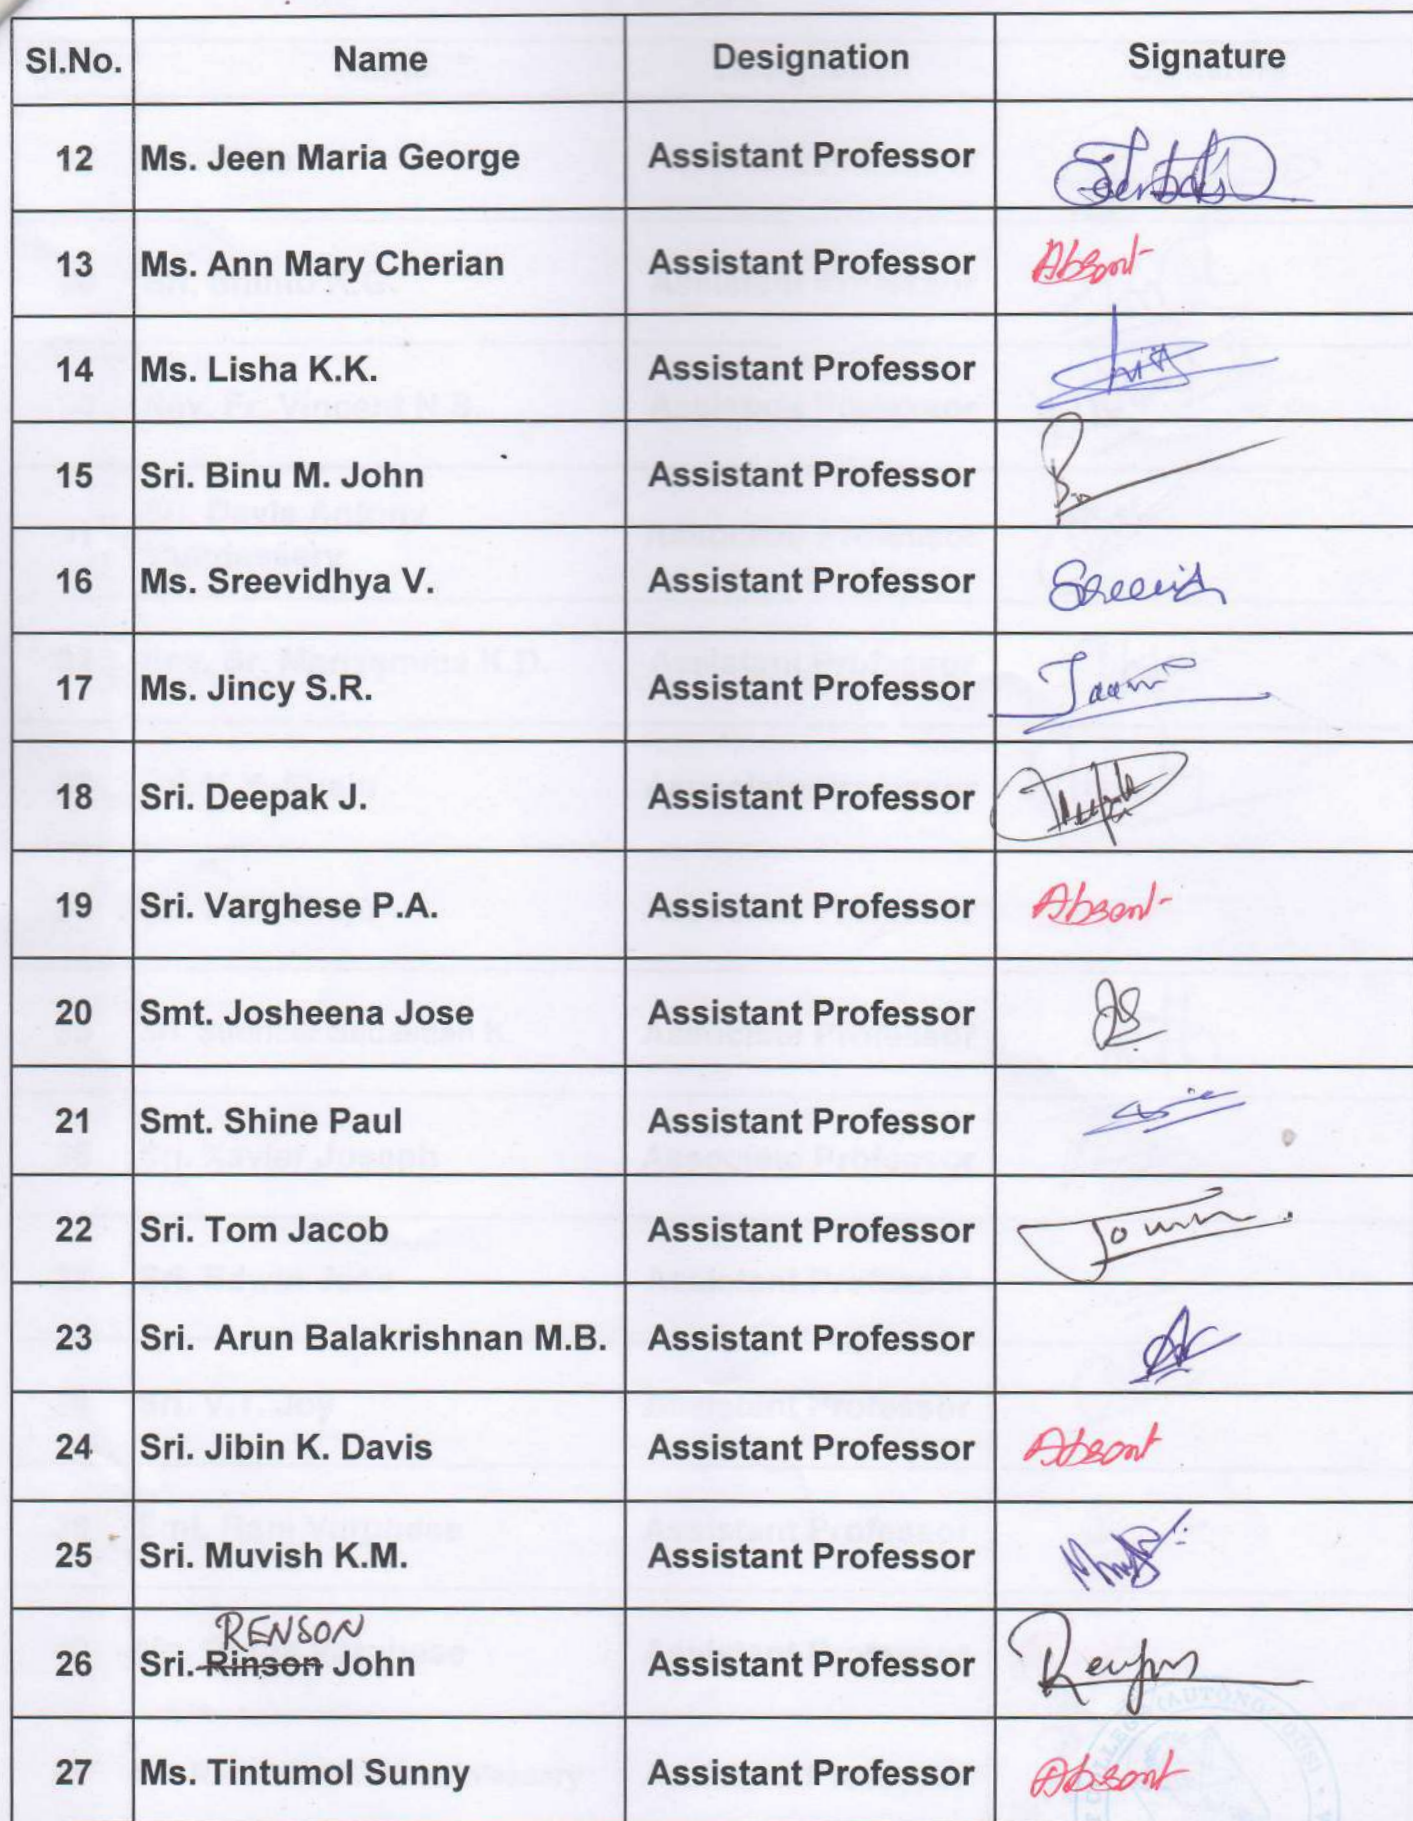 Sl.No. Name Designation Signature
12 Ms. Jeen Maria George Assistant Professor
13 Ms. Ann Mary Cherian Assistant Professor Absent
14 Ms. Lisha K.K. Assistant Professor
15 Sri. Binu M. John Assistant Professor
16 Ms. Sreevidhya V. Assistant Professor
17 Ms. Jincy S.R. Assistant Professor
18 Sri. Deepak J. Assistant Professor
19 Sri. Varghese P.A. Assistant Professor Absent
20 Smt. Josheena Jose Assistant Professor
21 Smt. Shine Paul Assistant Professor
22 Sri. Tom Jacob Assistant Professor
23 Sri. Arun Balakrishnan M.B. Assistant Professor
24 Sri. Jibin K. Davis Assistant Professor Absent
25 Sri. Muvish K.M. Assistant Professor
RENSON
26 Sri. Rinson John Assistant Professor
27 Ms. Tintumol Sunny Assistant Professor Absent